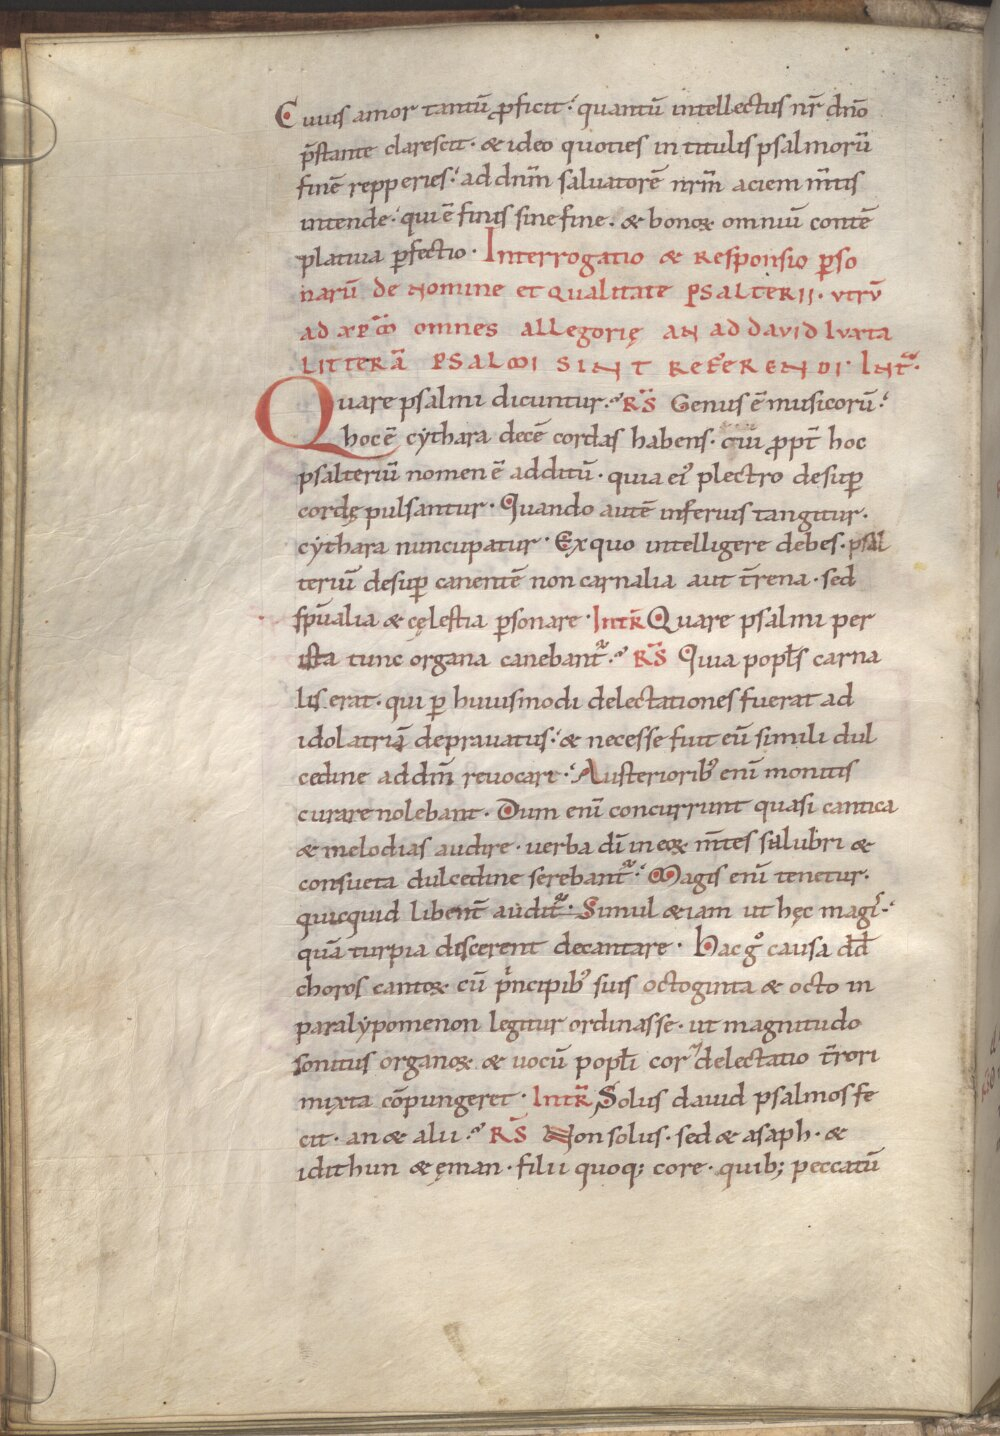 Cuius amor tantū ꝓficit. quantū intellectus nr̄ dn̄o
p̄stante clarescit. & ideo quoties in titulis psalmorū
finē repperies. ad dnm̄ saluatorē nrm̄ aciem m̄tis
intende. qui ē finis sine fine. & bonoꝝ omniū contē
platiua ꝑfectio. Interrogatio & Responsio ꝑso
narū de nomine et qualitate psalterii. utrū
ad xp̄m omnes allegorię an ad dauid luxta
litterā psalmi sint referendi. Int̄.
Quare psalmi dicuntur. Rs̄ Genus ē musicorū.
hoc ē cythara decē cordas habens. cui ꝓpt̄ hoc
psalteriū nomen ē additū. quia ei plectro desuꝑ
cordę pulsantur. Quando autē inferius tangitur.
cythara nuncupatur. Ex quo intelligere debes. psal
teriū desuꝑ canentē non carnalia aut t̄rena. sed
sp̄ualia & cęlestia ꝑsonare. Intr̄ Quare psalmi per
ista tunc organa canebant̄. Rs̄ Quia popl̄s carna
lis erat. qui ꝑ huiusmodi delectationes fuerat ad
idolatriā deprauatus. & necesse fuit eū simili dul
cedine ad dm̄ reuocari. Austeriorib; enī monitis
curare nolebant. Dum enī concurrunt quasi cantica
& melodias audire. uerba dī in eoꝝ m̄tes salubri &
consueta dulcedine serebant̄. Magis enī tenetur.
quicquid libent̄ audit̄. Simul & iam ut hęc magi.
quā turpia discerent decantare. Hac gͦ causa dd̄
choros cantoꝝ cū pͥncipib; suis octoginta & octo in
paralypomenon legitur ordinasse. ut magnitudo
sonitus organoꝝ & uocū popl̄i cor delectatio t̄rori
mixta cōpungeret. Intr̄ Solus dauid psalmos fe
cit. an & alii. Rs̄ Non solus. sed & asaph. &
idithun & ęman. filii quoq; core. quib; peccatū